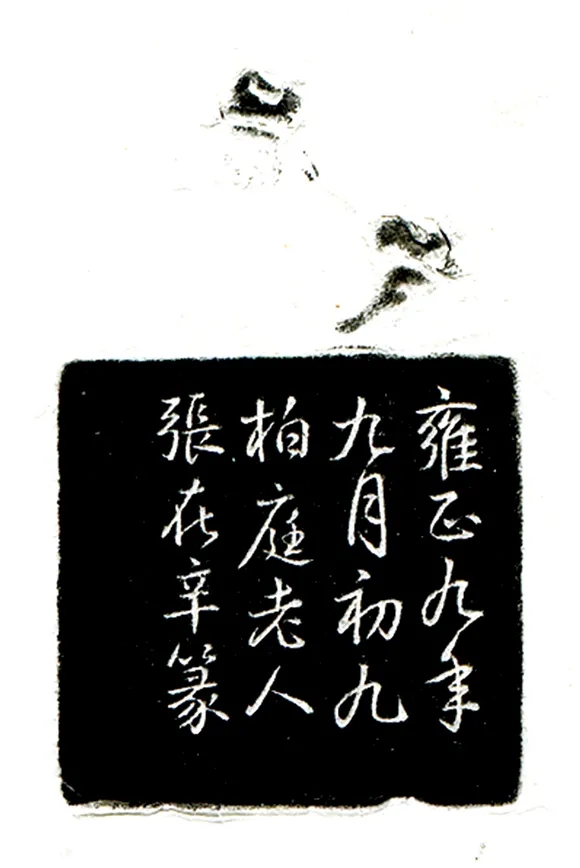 雍正九年
九月初九
柏庭老人
張在辛篆